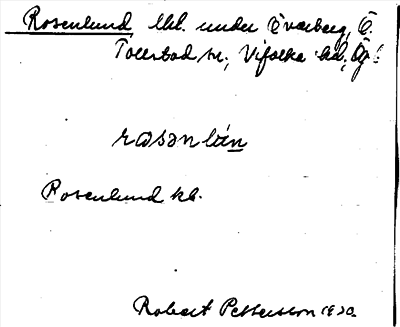 Rosenlund, lht. under Överberg, Ö.
Tollstad sn., Vifolka hd., Ög.
rωsən lún
Rosenlund kb.
Robert Pettersson 1930.